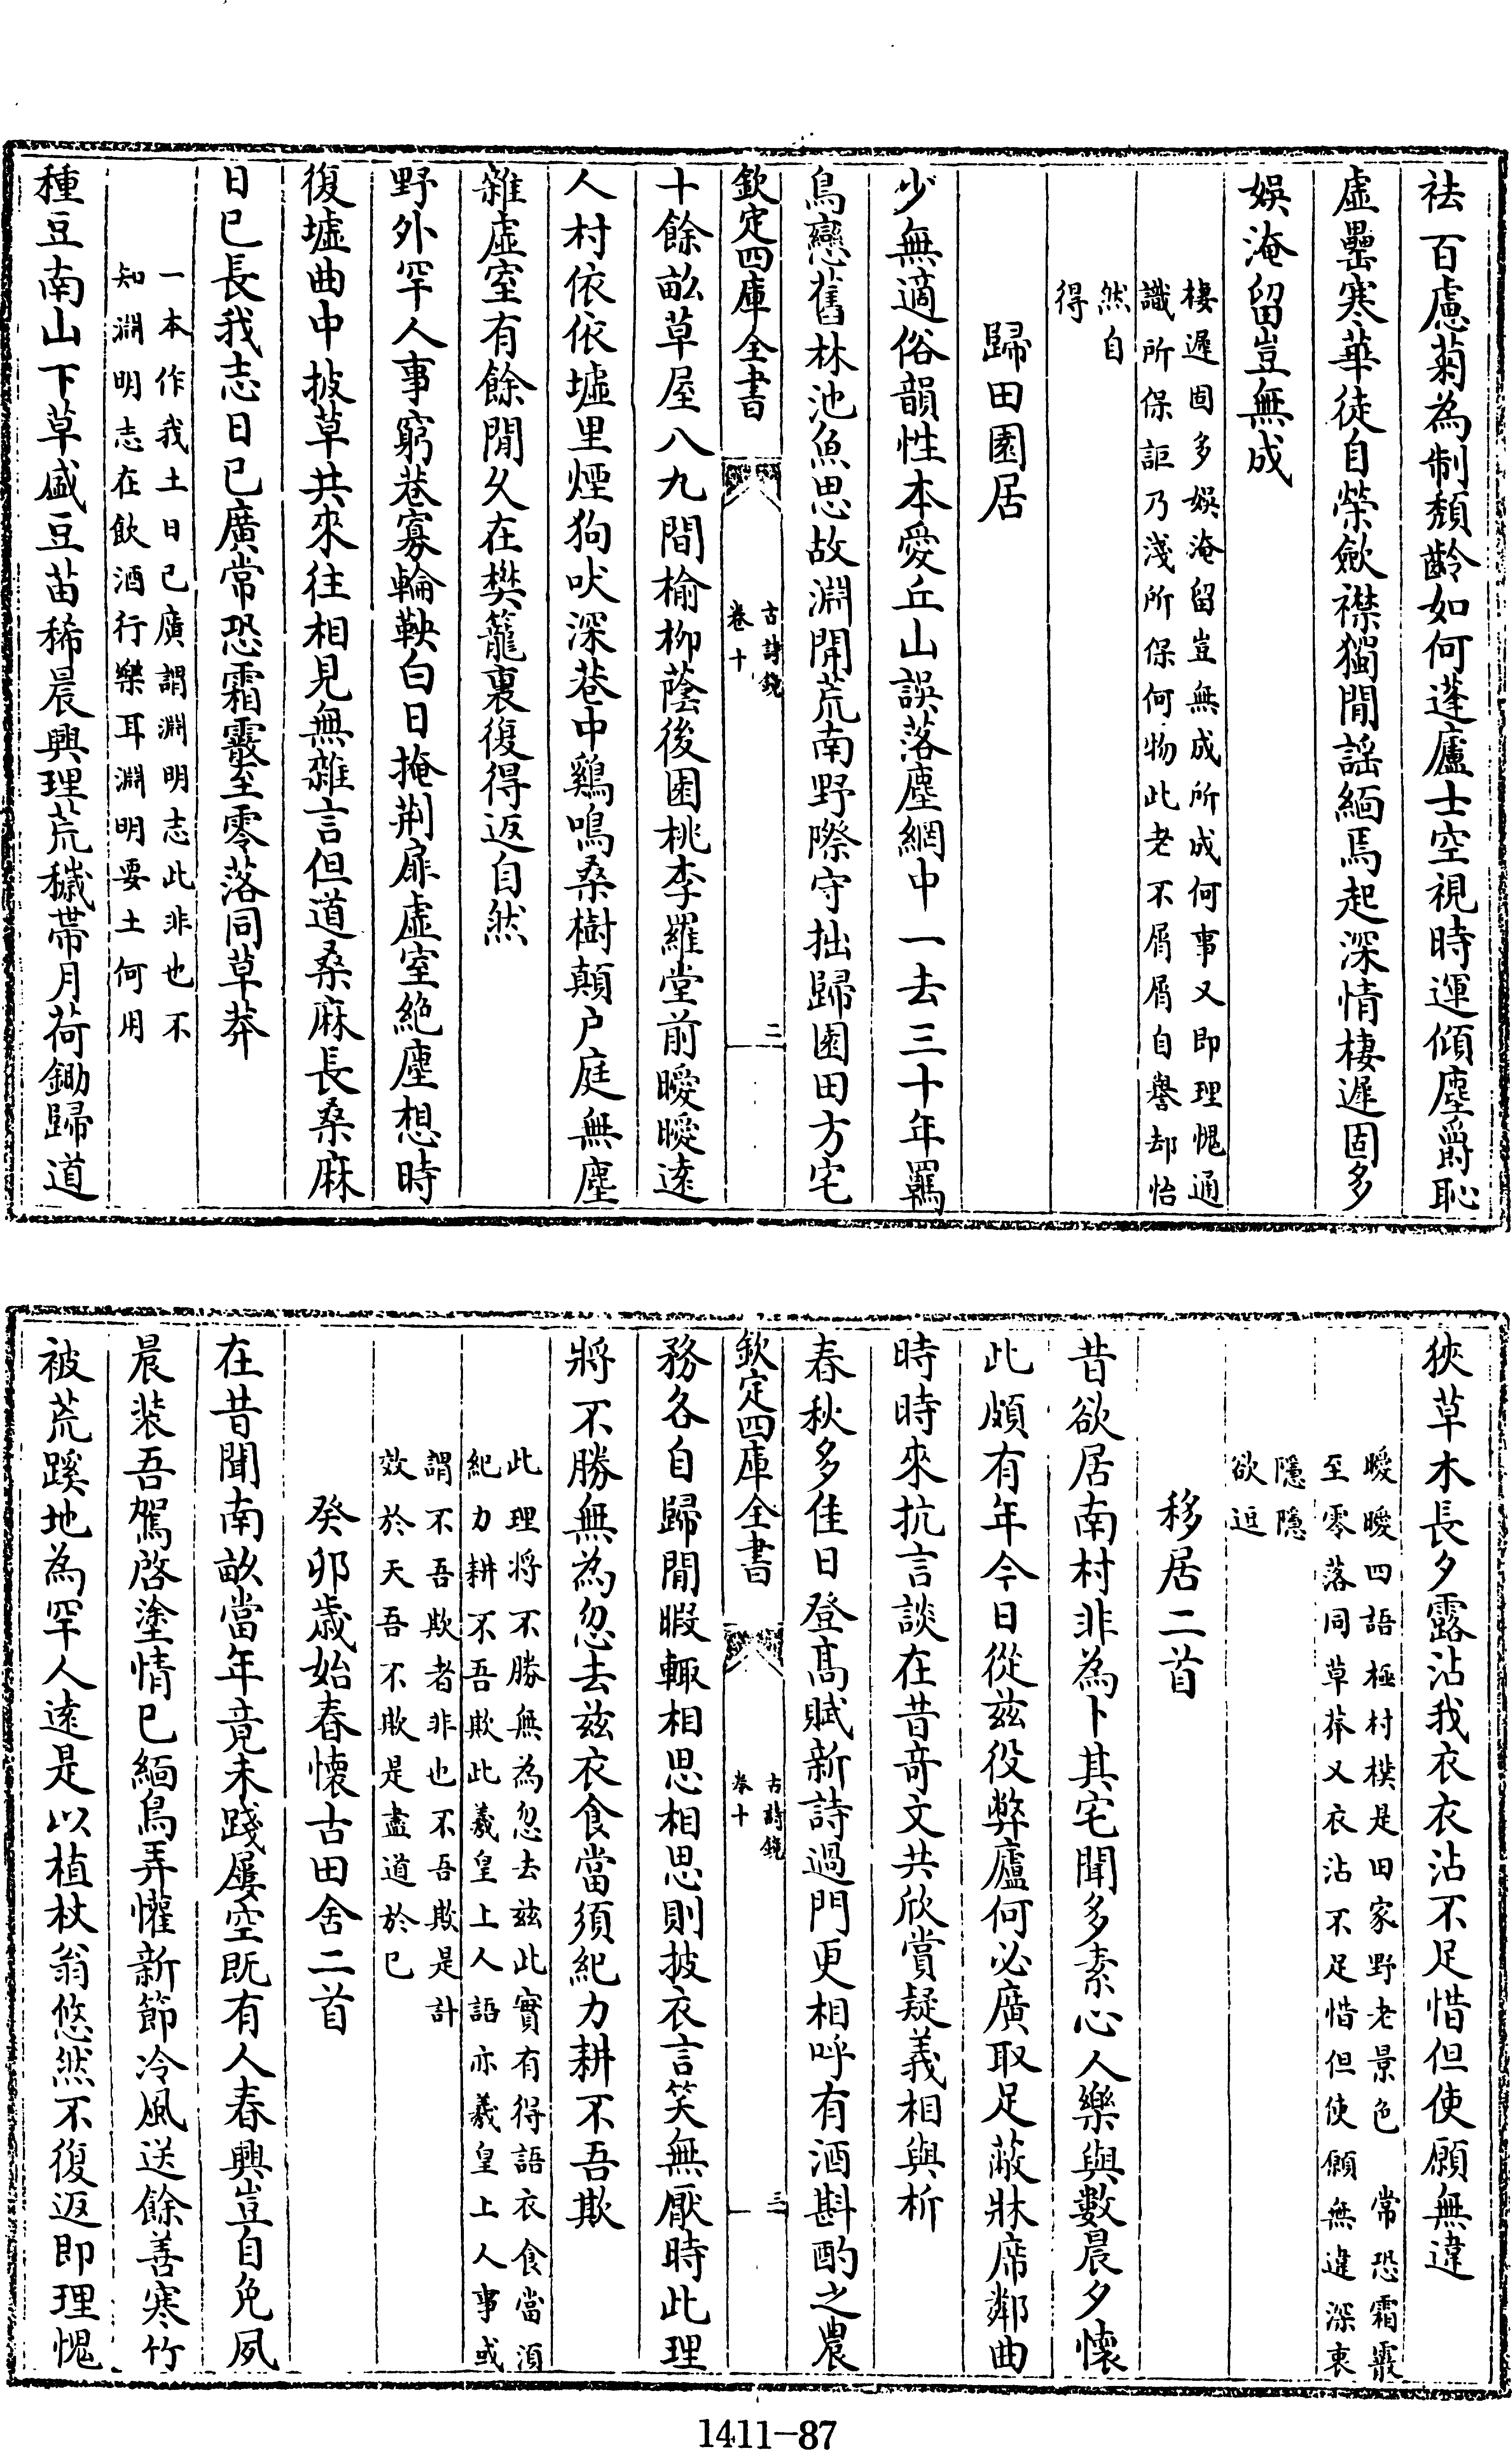 祛百慮菊為制頹齡如何蓬廬士空視時運傾塵爵恥
虛罍寒華徒自榮歛襟獨閒謡緬焉起深情棲遲固多
娯淹留豈無成
棲遲固多娯淹留豈無成所成何事又即理愧通
識所保詎乃淺所保何物此老不屑屑自譽却怡
然自
得
歸田園居
少無適俗韻性本愛丘山誤落塵網中一去三十年羈
鳥戀舊林池魚思故淵開荒南野際守拙歸園田方宅
欽定四庫全書
古詩鏡
卷十
二
十餘畝草屋八九間榆柳蔭後園桃李羅堂前曖曖逺
人村依依墟里煙狗吠深巷中鷄鳴桑樹顛户庭無塵
雜虛室有餘閒久在樊籠裏復得返自然
野外罕人事窮巷寡輪鞅白日掩荆扉虛室絶塵想時
復墟曲中披草共來往相見無雜言但道桑麻長桑麻
日已長我志日已廣常恐霜霰至零落同草莽
一本作我土日已廣謂淵明志此非也不
知淵明志在飲酒行樂耳淵明要土何用
種豆南山下草盛豆苗稀晨興理荒穢帶月荷鋤歸道
狹草木長夕露沾我衣衣沾不足惜但使願無違
曖曖四語極村樸是田家野老景色 常恐霜霰
至零落同草莽又衣沾不足惜但使願無違深衷
隱隱
欲逗
移居二首
昔欲居南村非為卜其宅聞多素心人樂與數晨夕懷
此頗有年今日從兹役弊廬何必廣取足蔽牀席鄰曲
時時來抗言談在昔竒文共欣賞疑義相與析
春秋多佳日登髙賦新詩過門更相呼有酒斟酌之農
欽定四庫全書
古詩鏡
卷十
三
務各自歸閒暇輙相思相思則披衣言笑無厭時此理
將不勝無為忽去兹衣食當須紀力耕不吾欺
此理將不勝無為忽去兹此實有得語衣食當須
紀力耕不吾欺此羲皇上人語亦羲皇上人事或
謂不吾欺者非也不吾欺是計
效於天吾不欺是盡道於已
癸卯歳始春懷古田舍二首
在昔聞南畝當年竟未踐屢空既有人春興豈自免夙
晨装吾駕啓塗情已緬鳥弄懽新節冷風送餘善寒竹
被荒蹊地為罕人逺是以植杖翁悠然不復返即理愧
1411-87